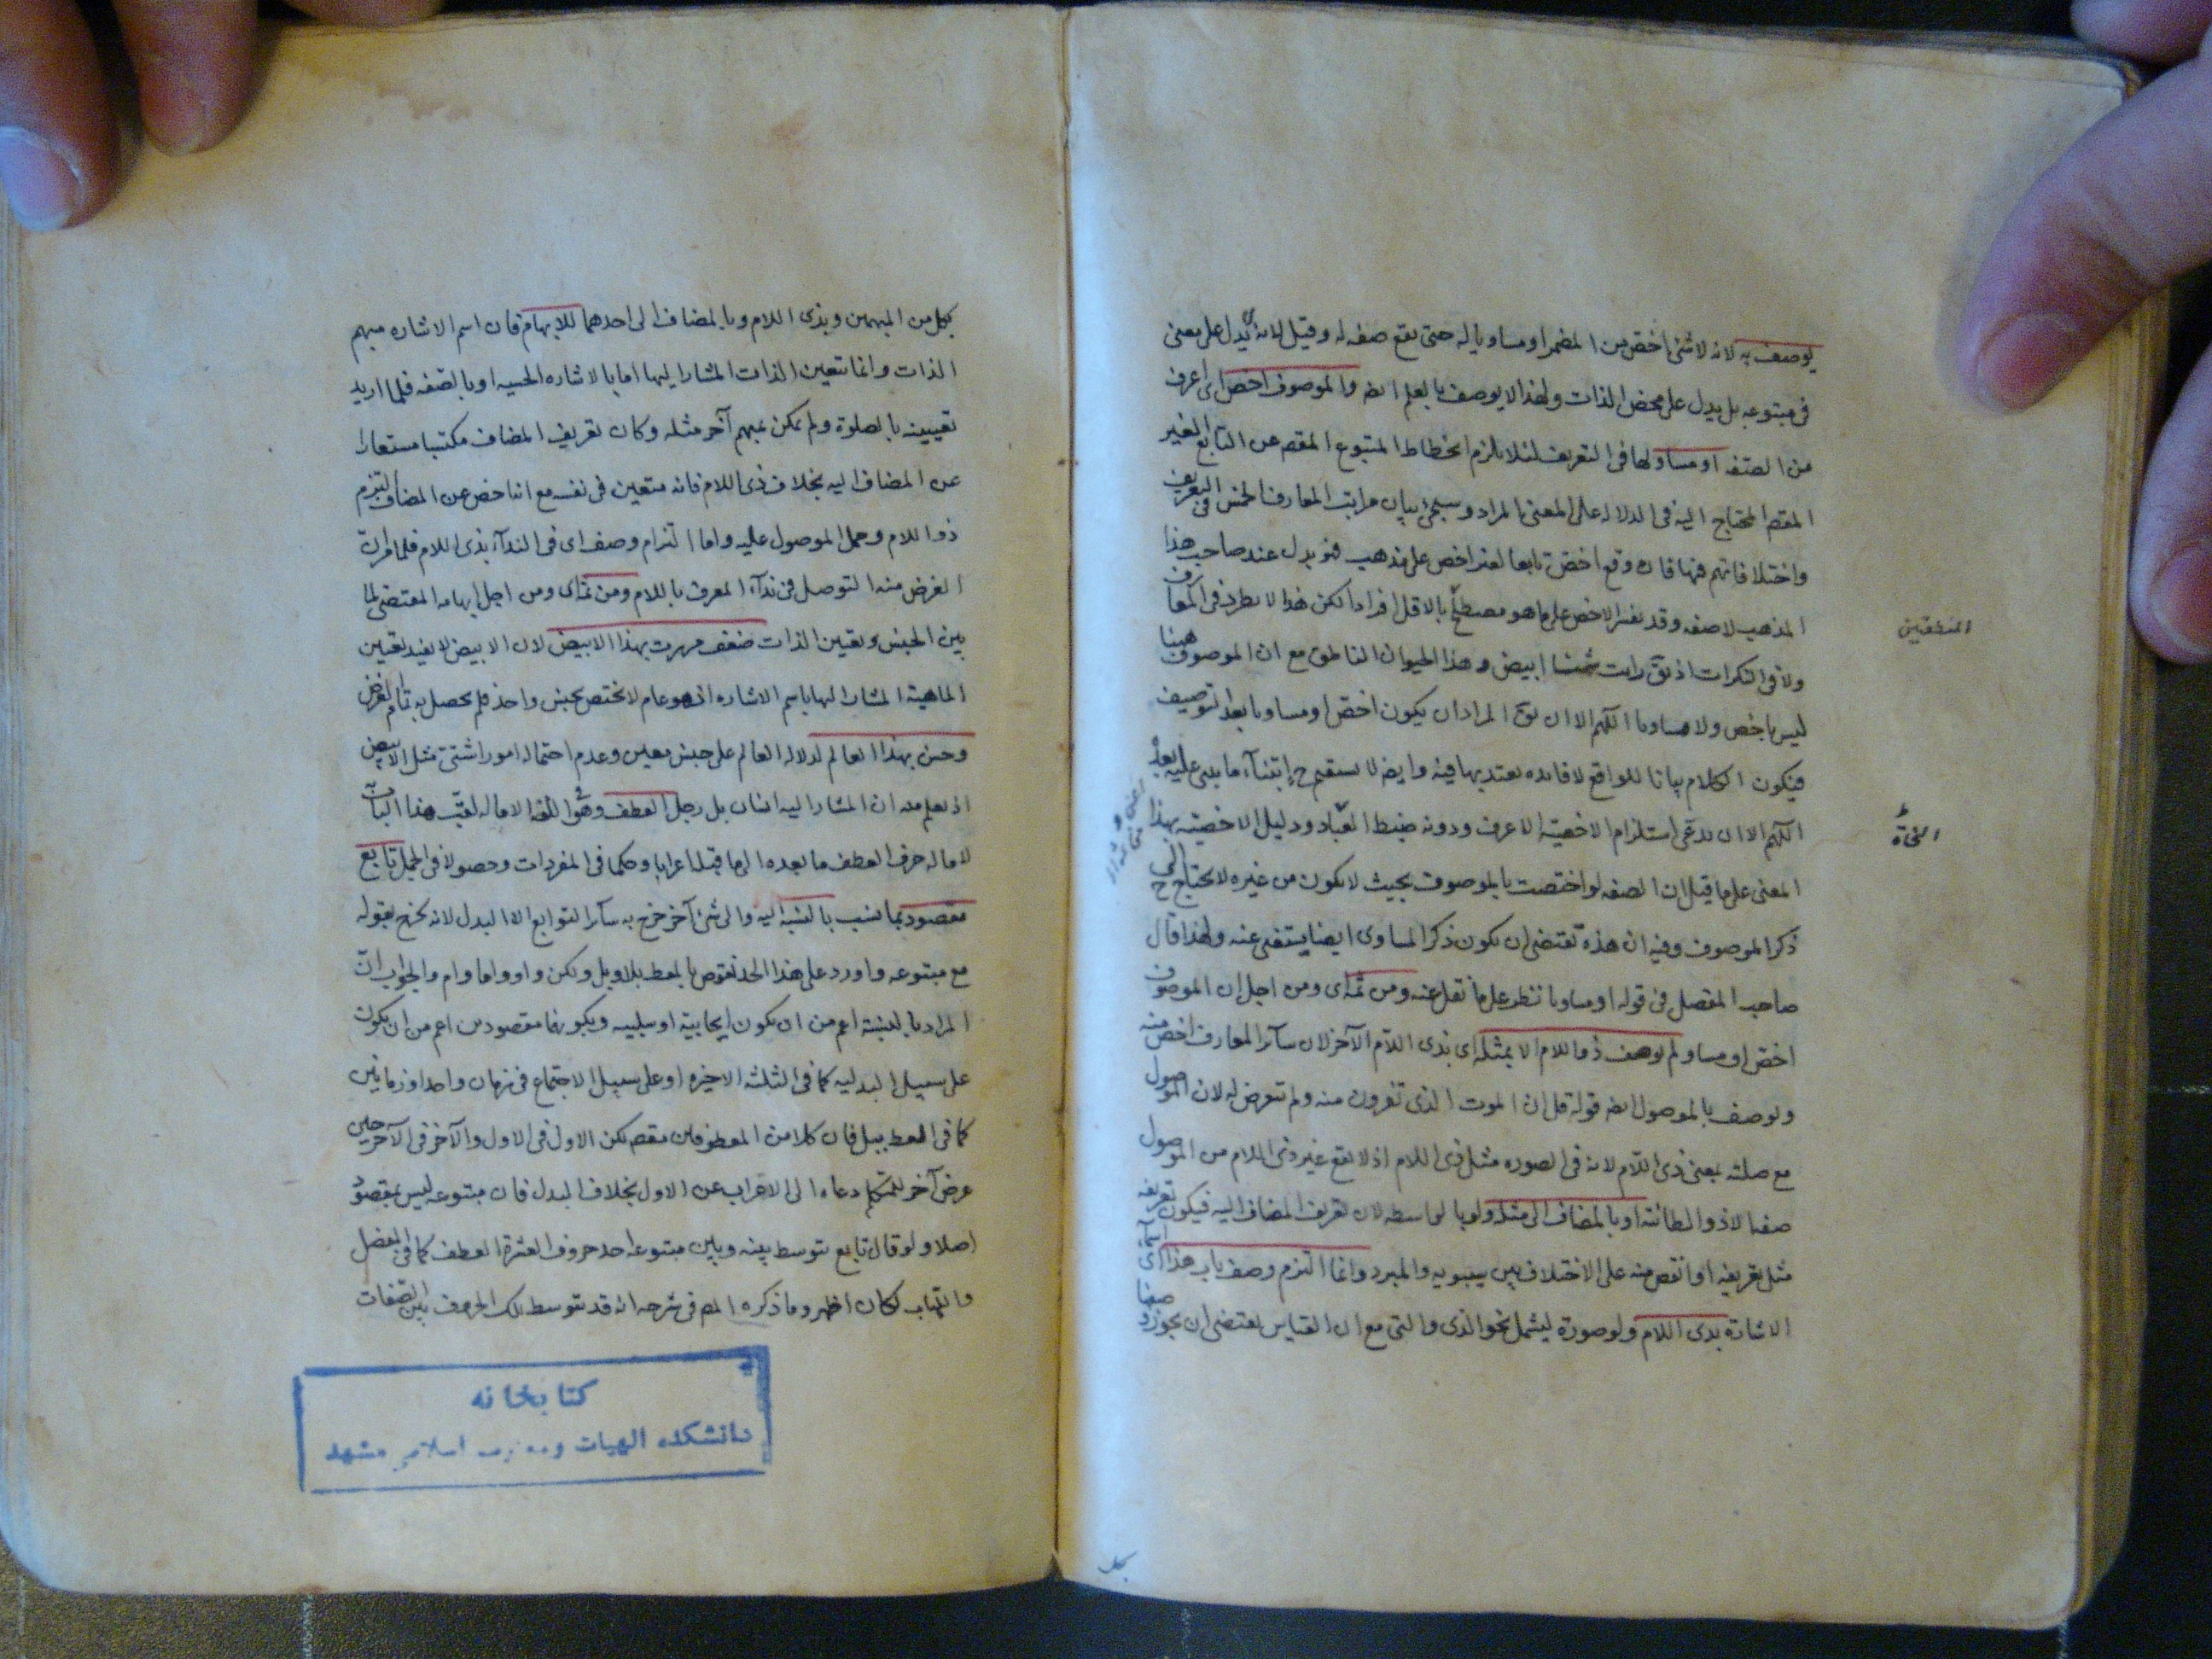 يوصف به لانه لا شئ اخص من المضمر او مساويا له حتى يقع صفه له وقيل لانه لا يدل على معنى
فى متبوعه بل يدل على محض الذات ولهذا لا يوصف بالعلم ايضا والموصوف اخص اى اعرف
من الصفه او مساو لها فى التعريف لئلا يلزم انحطاط المتبوع المقص عن التابع الغير
المقص المحتاج اليه فى الدلاله على المعنى المراد وسيجئ بيان مراتب المعارف الخمس فى التعريف
واختلافاتهم فيها فان وقع اخص تابعا لغير اخص على مذهب فهو بدل عند صاحب هذا
المذهب لا صفه وقد يفسر الاخص على ما هو مصطلح بالاقل افرادا لكن هذا لا يطرد فى المعارف
المنطقيين
ولا فى النكرات اذ يق رايت شيئا ابيض وهذا الحيوان الناطق مع ان الموصوف هيهنا
ليس باخص ولا مساويا اللهم الا ان يق المراد ان يكون اخص او مساويا بعد التوصيف
فيكون الكلام بيانا للواقع لا فايده يعتد بها فيه وايض لا يستقيم ح ابتناء ما يبنى عليه بعد
اللهم الا ان يدعى استلزام الاخصية الاعرف ودونه ودليل الاخصيته بهذا
النحاة
المعنى على ما قيل ان الصفه لو اختصت بالموصوف بحيث لا يكون من غيره لا يحتاج ح الى
ذكر الموصوف وفيه ان هذه تقتضى ان يكون ذكر المساوى ايضا يستغنى عنه ولهذا قال
صاحب المفصل فى قوله او مساويا نظر على ما نقل عنه ومن ثم اى ومن اجل ان الموصوف
اخص او مساو لم يوصف ذو اللام الا بمثله اى بذى اللام الآخر لان سآئر المعارف اخص منه
ويوصف بالموصول ايض قوله قل ان الموت الذى تفرون منه ولم تتعرض له لان الموصول
مع صلته بمعنى ذى اللام لانه فى الصوره مثل ذى اللام اذ لا يقع غير ذى اللام من الموصول
صفا لا ذو الطائية او بالمضاف الى مثله ولو بالواسطه لان تعريف المضاف اليه فيكون تعريفه
مثل تعريفه او انقص منه على الاختلاف بين سيبويه والمبرد وانما التزم وصف باب هذا اى اسماء
الاشارة بذى اللام ولو صورة ليشمل نحو الذى والتى مع ان القياس يقتضى ان يجوز صفا
بكل من المبهمين وبذى اللام وبالمضاف الى احدهما للابهام فان اسم الاشاره مبهم
الذات وانما تتعين الذات المشار اليها اما بالاشاره الحسيه او بالصفه فلما اريد
تعيينه بالصلوة ولم يمكن بمبهم آخر مثله وكان تعريف المضاف مكتسبا مستعارا
عن المضاف اليه بخلاف ذى اللام فانه متعين فى نفسه مع انه اخص عن المضاف التزم
ذو اللام وحمل الموصول عليه واما التزام وصف اى فى الندآء بذى اللام فلما مر ان
الغرض منه التوصل فى ندآء المعرف باللام ومن ثم اى ومن اجل ابهامه المقتضى لما
بين الجنس وتعين الذات ضعف مررت بهذا الابيض لان الابيض لا يفيد تعيين
الماهية المشار اليها باسم الاشاره اذ هو عام لا يختص بجنس واحد فلم يحصل به تمام الغرض
وحسن بهذا العالم لدلاله العالم على جنس معين وعدم احتماله امورا شتى مثل الابيض
اذ يعلم منه ان المشار اليه انسان بل رجل العطف وهو اللغة الاماله لقب هذا الباب
لاماله حرف العطف ما بعده الى ما قبله اعرابا وحكما فى المفردات وحصولا فى الجمل تابع
مقصود بما نسب بالنسبة اليه والى شئ آخر خرج به سآئر التوابع الا البدل لانه يخرج بقوله
مع متبوعه واورد على هذا الحد نقوص بالمعط بلا وبل ولكن واو واما وام والجواب ان
المراد بالنسبة اعم من ان يكون ايجابية او سلبيه وبكونهما مقصودين اعم من ان يكون
على سبيل البدليه كما فى الثلثه الاخيره او على سبيل الاجتماع فى زمان واحد او زمانين
كما فى المعط ببل فان كلا من المعطوفين مقص لكن الاول فى الاول والآخر فى الآخر حين
عرض آخر للمتكلم دعاه الى الاضراب عن الاول بخلاف البدل فان متبوعه ليس بمقصود
اصلا ولو قال تابع يتوسط بينه وبين متبوعه احد حروف العشرة العطف كما فى المفصل
واللباب لكان اظهر وما ذكره المص فى شرحه انه قد يتوسط تلك الحروف بين الصفات
كتابخانه
دانشكده الهيات ومعارف اسلامى مشهد